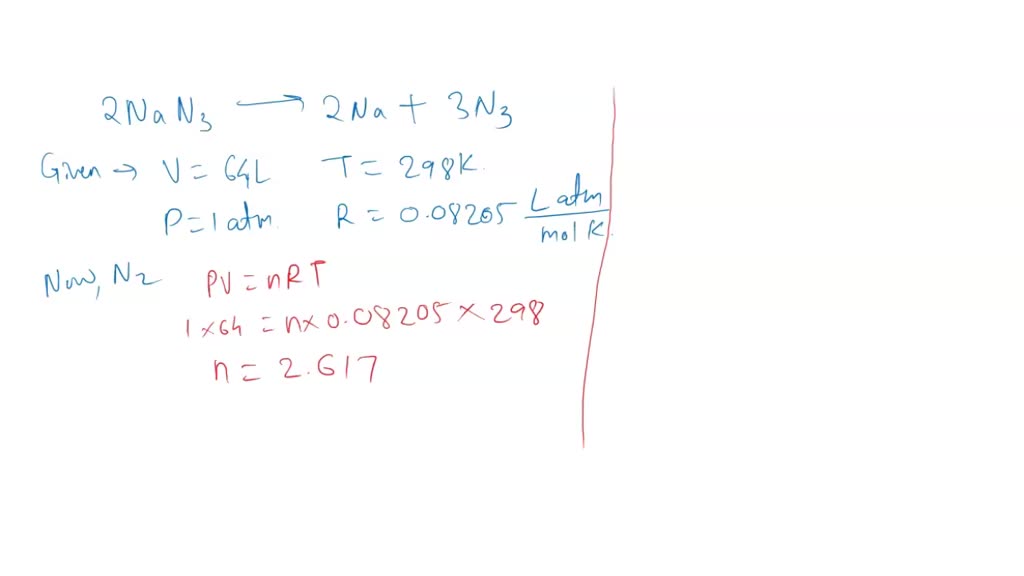 2NaN₃ → 2Na + 3N₃
Given → V = 64L T = 298K.
P = 1 atm R = 0.08205 L atm / mol K.
Now, N₂ PV = nRT
1 × 64 = n × 0.08205 × 298
n = 2.617